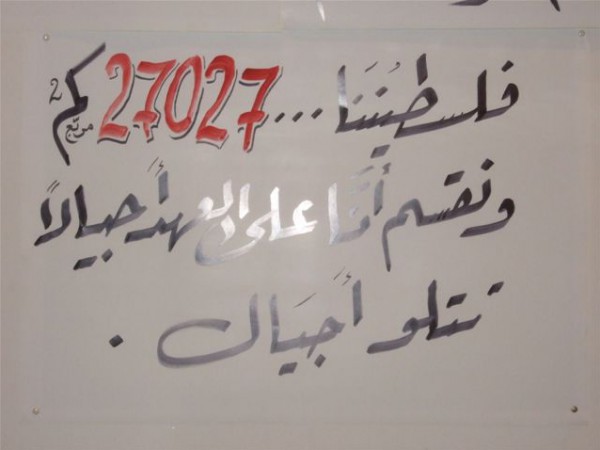 فلسطينُنَا... 27027 كم2 مربّع
ونقسم أنَّا على العهد أجيالاً
تتلو أجيَال .